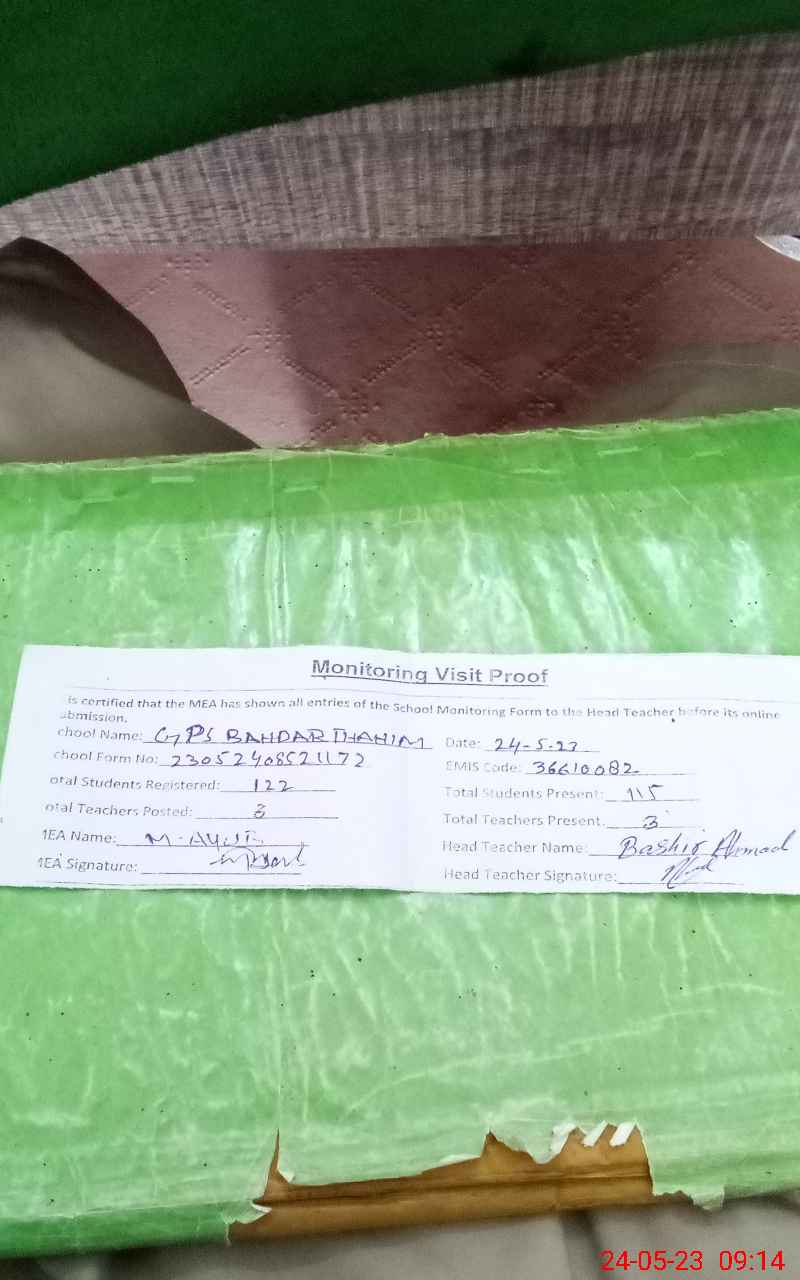 Monitoring Visit Proof
is certified that the MEA has shown all entries of the School Monitoring Form to the Head Teacher before its online
ubmission.
chool Name: GPS BANDAR THAHIM Date: 24-5-23
chool Form No: 23052408521172 EMIS Code: 36610082
otal Students Registered: 122 Total Students Present: 115
otal Teachers Posted: 3 Total Teachers Present. 3
MEA Name: M-AYUB Head Teacher Name: Bashir Ahmad
MEA Signature: Head Teacher Signature:
24-05-23 09:14